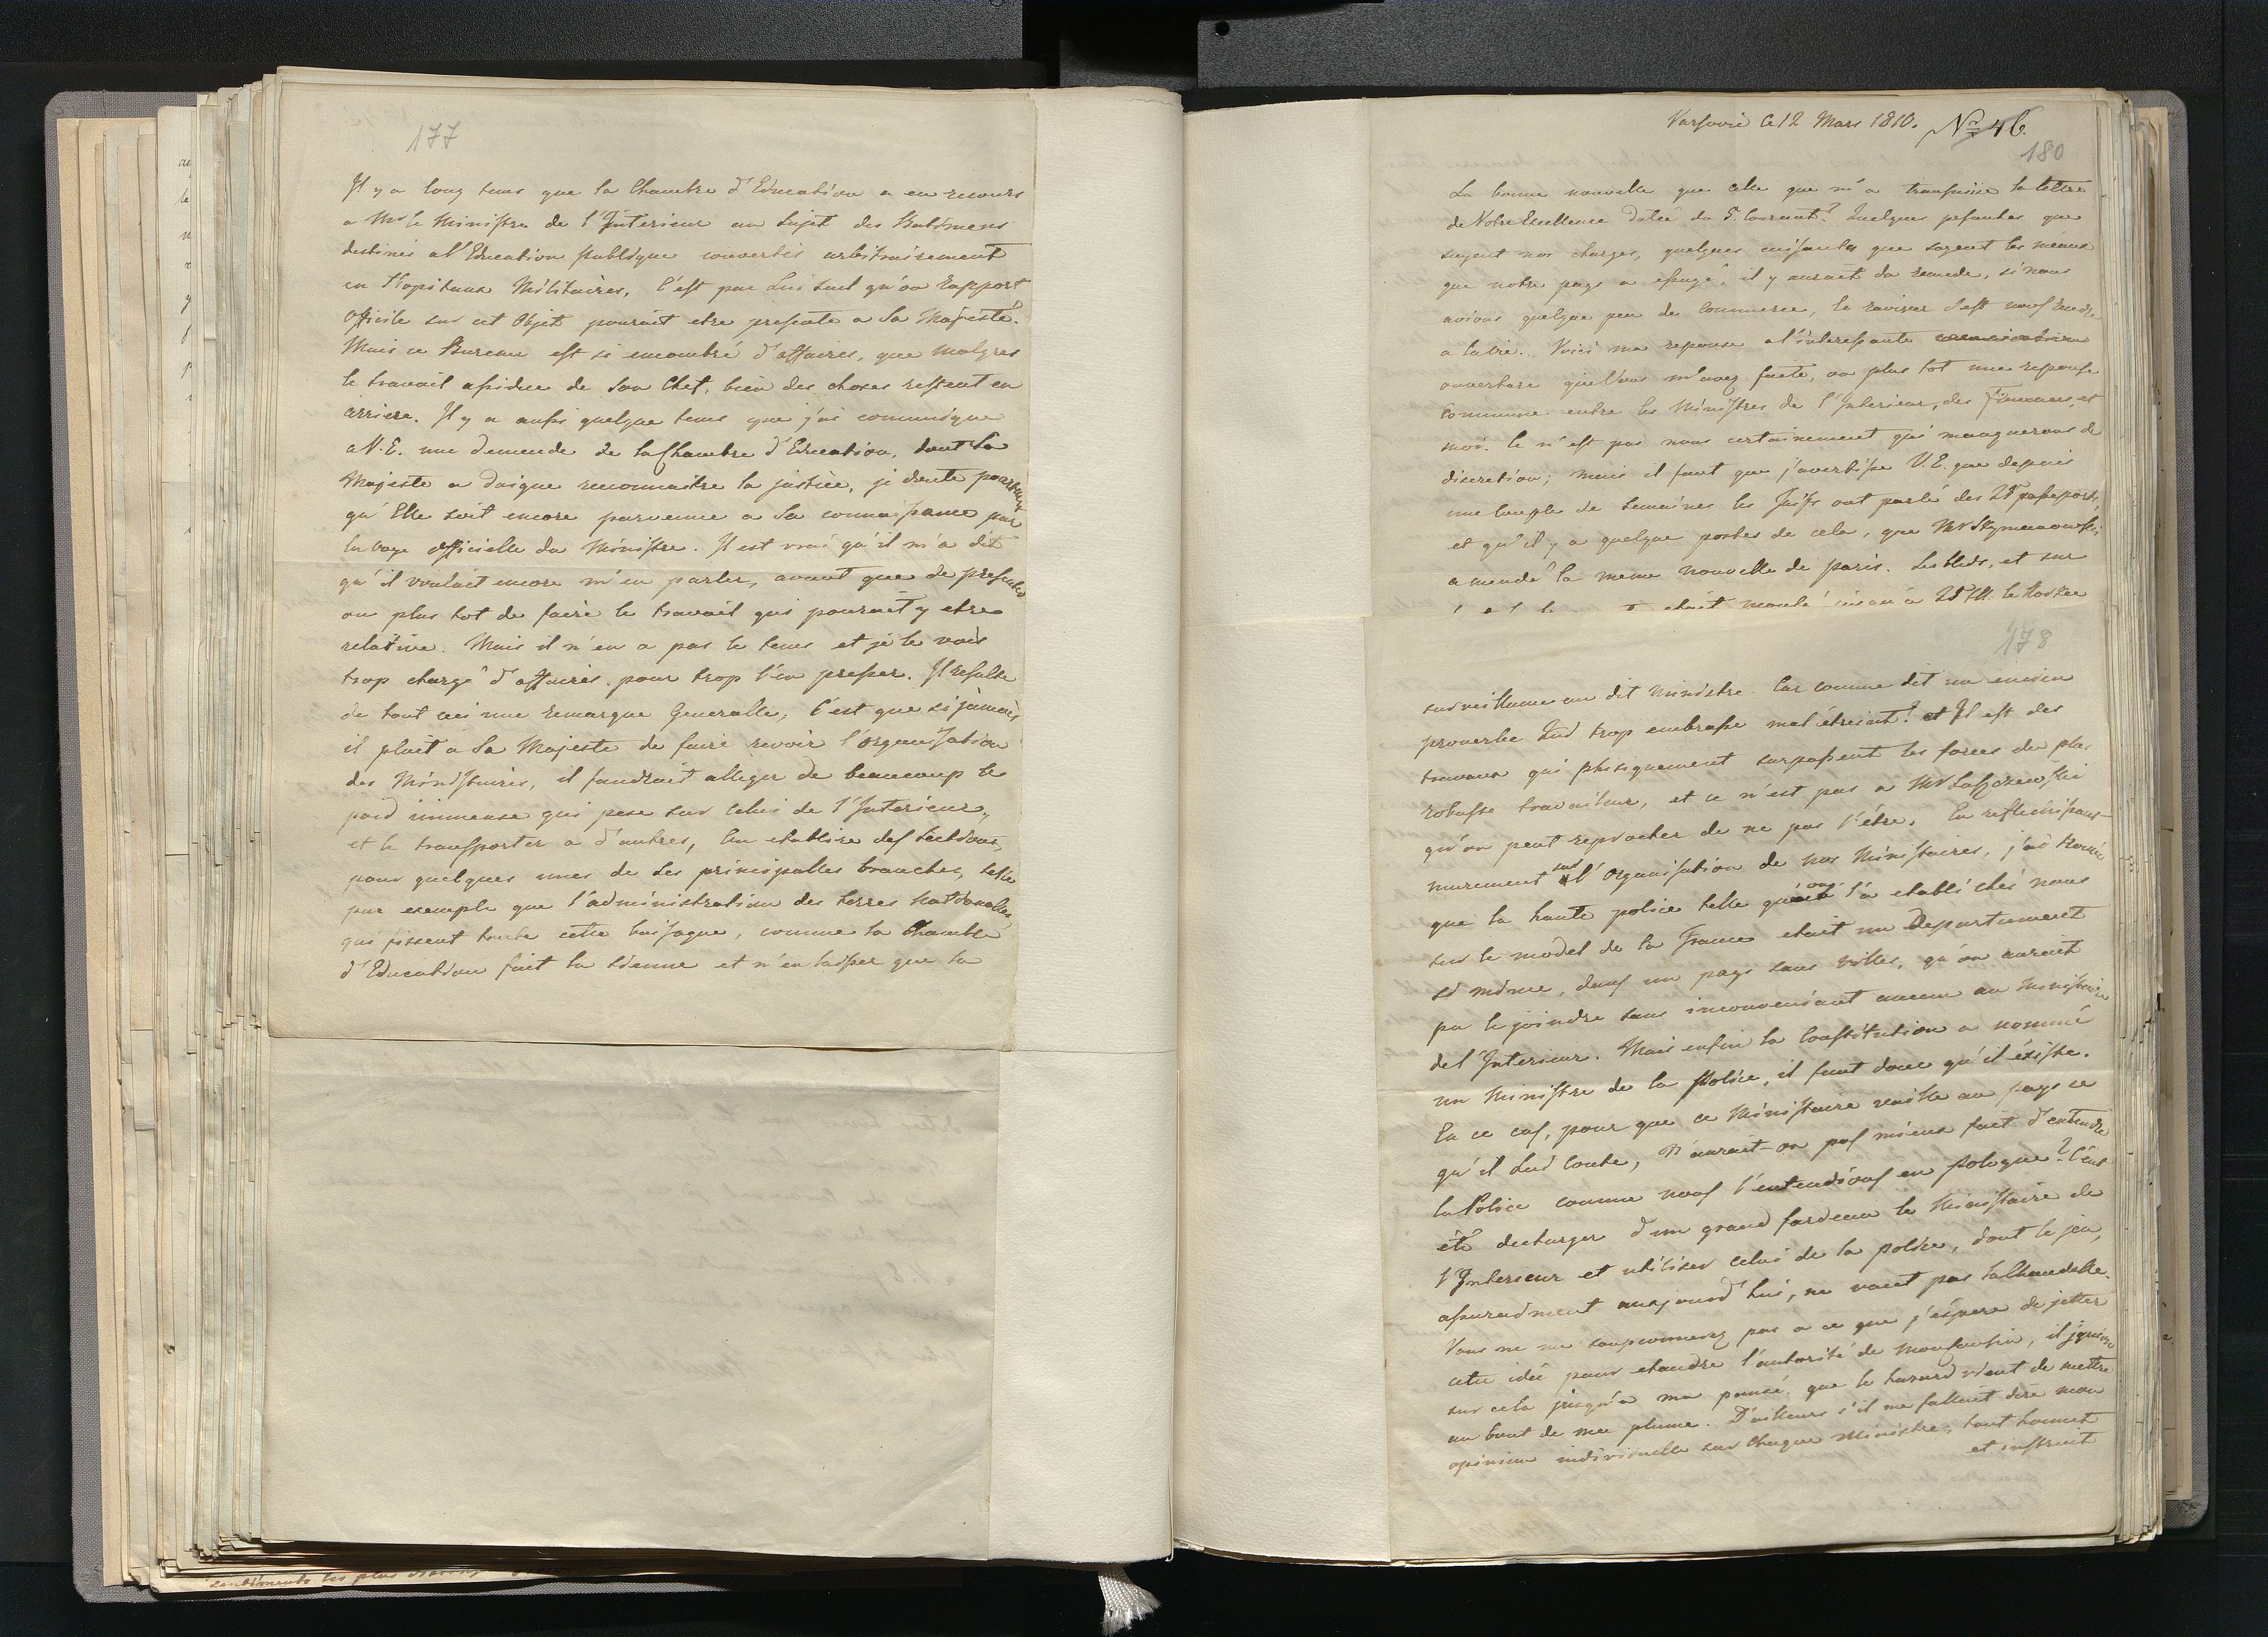 177
Il y a long tems que la Chambre d'Education a eu recours
a Mr le Ministre de l'Interieur au sujet des Batimens
destinés a l'Education publique convertis arbitrairement
en Hopitaux Militaires, C'est par Lui seul qu'un Rapport
officile sur cet Objet pourait etre presenté a Sa Majesté.
Mais ce Bureau est si encombré d'affaires, que malgres
le travail assidue de son Chef, bien des choses restent en
arriere. Il y a aussi quelque tems que j'ai comuniqué
a V.E. une demende de la Chambre d'Education, dont Sa
Majesté a daigné reconnaitre la justice, je doute pourtant
qu'Elle soit encore parvenue a Sa connaissance par
la voye officielle du Ministre. Il est vrai qu'il m'a dit
qu'il voulait encore m'en parler, avant que de presenter
ou plus tot de faire le travail qui pourait y etre
relative. Mais il n'en a pas le tems et je le vois
trop chargé d'affaires pour trop l'en presser. Il resulte
de tout ceci une remarque Generalle; C'est que si jamais
il plait a Sa Majesté de faire revoir l'organisation
des Ministaires, il faudrait alleger de beaucoup le
poid immense qui pese sur celui de l'Interieur,
et le transporter a d'autres, ou etablire des sections,
pour quelques unes de ses principalles branches, telle
par exemple que l'administration des terres Nationalles,
qui fissent toute cette besogne, comme la Chambre
d'Education fait la sienne et n'en laisser que la
Varsovie Ce 12 Mars 1810. No 46.
180
La bonne nouvelle que celle que m'a transmise la lettre
de Votre Excellence datée du 5. Courant! Quelques pesantes que
soyent nos charges, quelques cuisantes que soyent les meaux
que notre pays a essuyé, il y aurait du remede, si nous
avions quelque peu de Commerce, le raviver c'est nous rendre
a la vie. Voici ma reponse a l'interessante
ouverture que Vous m'avez faite, ou plus tot une reponse
Commune entre les Ministres de l'Interieur, des Finances, et
moi. Ce n'est pas nous certainement qui manquerons de
discretion; mais il faut que j'avertisse V.E. que depuis
une Couple de Semaines les Juifs ont parlé des passeports,
et qu'il y a quelque postes de cela, que Mr Szymanowski
a mendé la meme nouvelle de paris. Les bleds, et sur
178
surveillance au dit Ministre. Car comme dit un encien
proverbe Qui trop embrasse mal étreint! et Il est des
travaux qui phisiquement surpassent les forces du plus
robuste travailleur, et ce n'est pas a Mr Łuszczewski
qu'on peut reprocher de ne pas l'étre. En reflechissant
murement sur l'Organisation de nos Ministaires, j'ai trouvé
que la haute police telle qu'on l'a etabli chés nous
sur le model de la France etait un Departement
si mince, dans un pays sans villes, qu'on aurait
pu le joindre sans inconveniant aucun au Ministaire
de l'Interieur. Mais enfin la Constitution a nommé
un Ministre de la Police, il faut donc qu'il éxiste.
En ce cas, pour que ce Ministaire vaille au pays ce
qu'il Lui Coute, N'aurait-on pas mieux fait d'entendre
la Police comme nous l'entendions en Pologne? C'eut
été decharger d'un grand fardeau le Ministaire de
l'Interieur et utiliser celui de la police, dont le jeu,
assurement aujourd'hui, ne vaut pas la Chandelle.
Vous ne me soupconnerez pas a ce que j'espere de jetter
cette idée pour etandre l'autorité de mon Cousin, il ignore
sur cela jusqu'a ma pensé, que le hazard vient de mettre
au bout de ma plume. D'ailleurs s'il me fallait dire mon
opinion individuelle sur chaque Ministre, tout honnet
et instruit